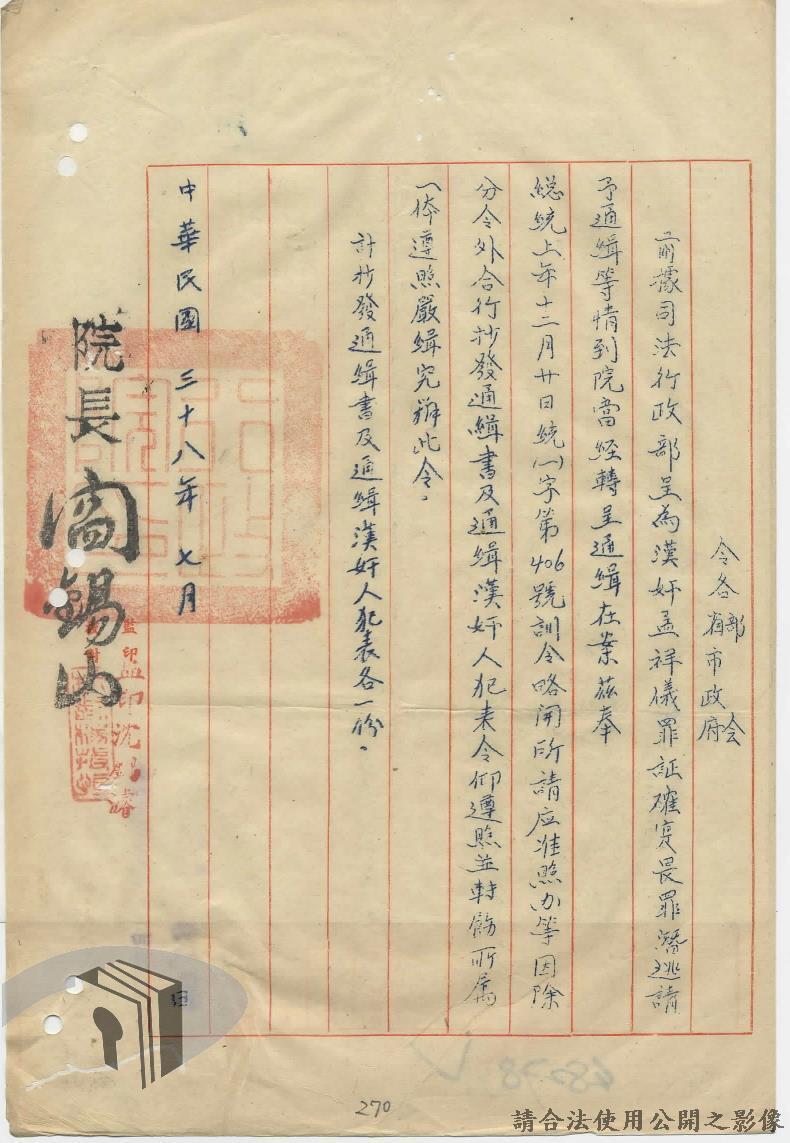 令各部会
省市政府
前據司法行政部呈為漢奸孟祥儀罪証確实畏罪潛逃請
予通緝等情到院當經轉呈通緝在案茲奉
総統上年十二月廿日統(一)字第406號訓令略開所請应准照办等因除
分令外合行抄發通緝書及通緝漢奸人犯表令仰遵照並轉飭所属
一体遵照嚴緝究辦此令。
計抄發通緝書及通緝漢奸人犯表各一份。
中華民國三十八年七月
日
院長閻錫山
監印
270
請合法使用公開之影像